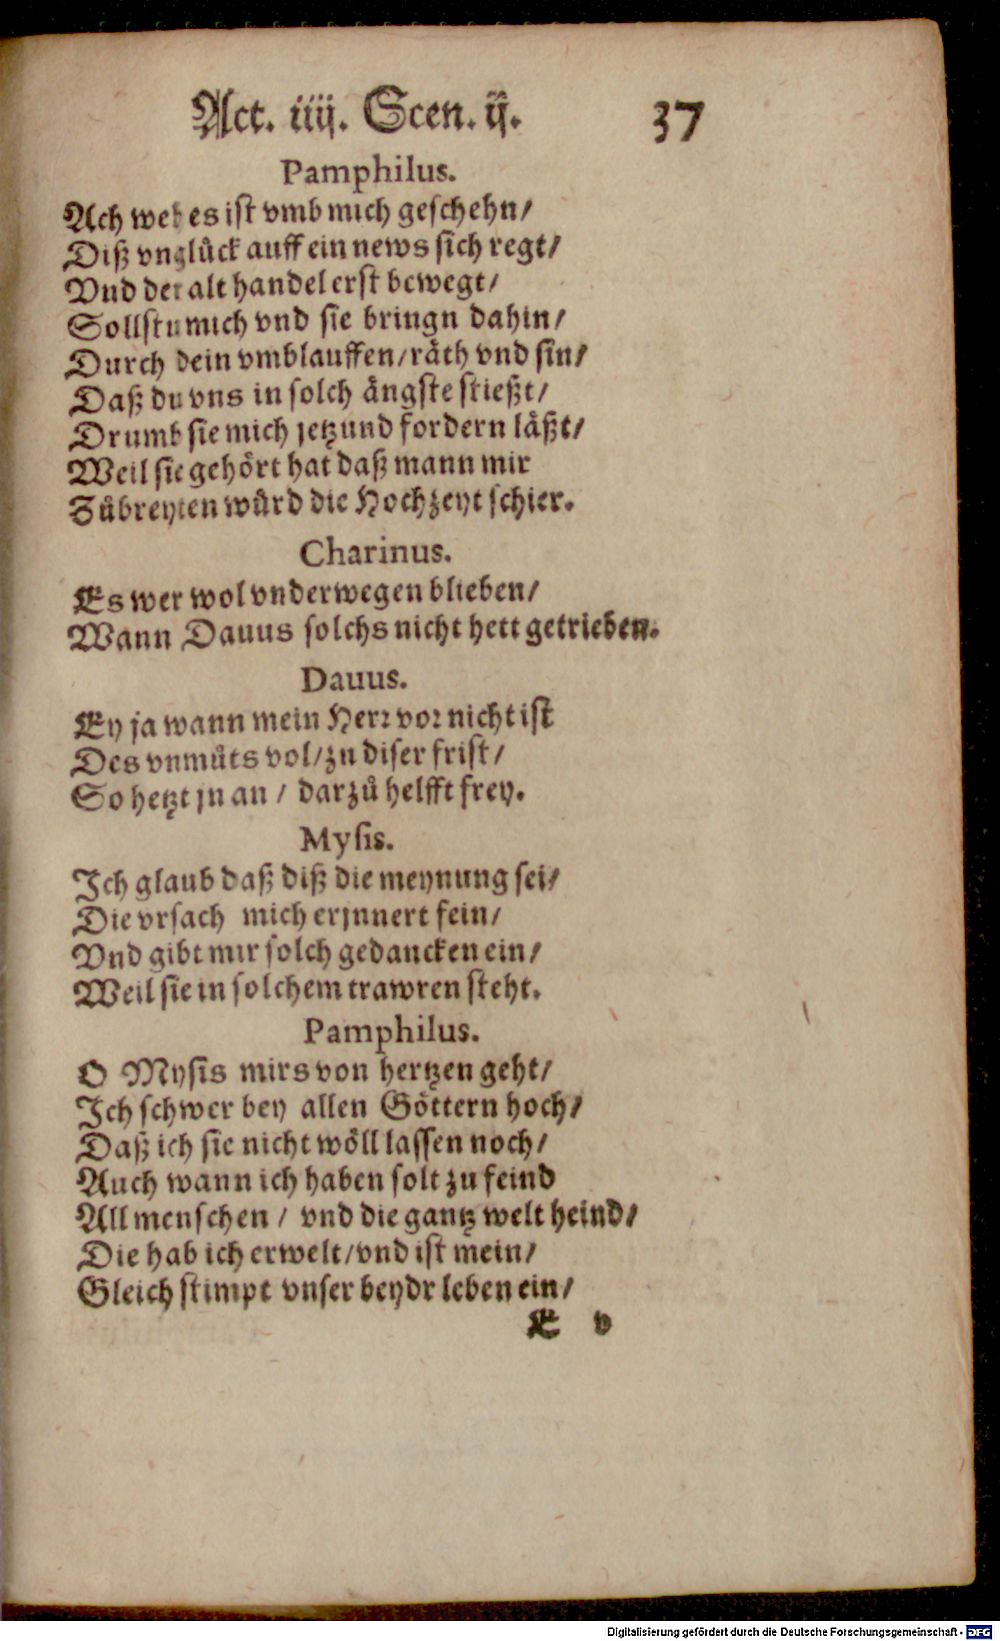 Act. iiij. Scen. ij. 37
Pamphilus.
Ach weh es ist vmb mich geschehn/
Diß vnglůck auff ein news sich regt/
Vnd der alt handel erst bewegt/
Sollstu mich vnd sie bringn dahin/
Durch dein vmblauffen/ räth vnd sin/
Daß du vns in solch ängste stießt/
Drumb sie mich jetzund fordern läßt/
Weil sie gehört hat daß mann mir
Zůbreyten würd die Hochzeyt schier.
Charinus.
Es wer wol vnderwegen blieben/
Wann Dauus solchs nicht hett getrieben.
Dauus.
Ey ja wann mein Herr vor nicht ist
Des vnmůts vol/ zu diser frist/
So hetzt jn an / darzů helfft frey.
Mysis.
Ich glaub daß diß die meynung sei/
Die vrsach mich erjnnert fein/
Vnd gibt mir solch gedancken ein/
Weil sie in solchem trawren steht.
Pamphilus.
O Mysis mirs von hertzen geht/
Ich schwer bey allen Göttern hoch/
Daß ich sie nicht wöll lassen noch/
Auch wann ich haben solt zu feind
All menschen / vnd die gantz welt heind/
Die hab ich erwelt/ vnd ist mein/
Gleich stimpt vnser beydr leben ein/
E v
Digitalisierung gefördert durch die Deutsche Forschungsgemeinschaft - DFG